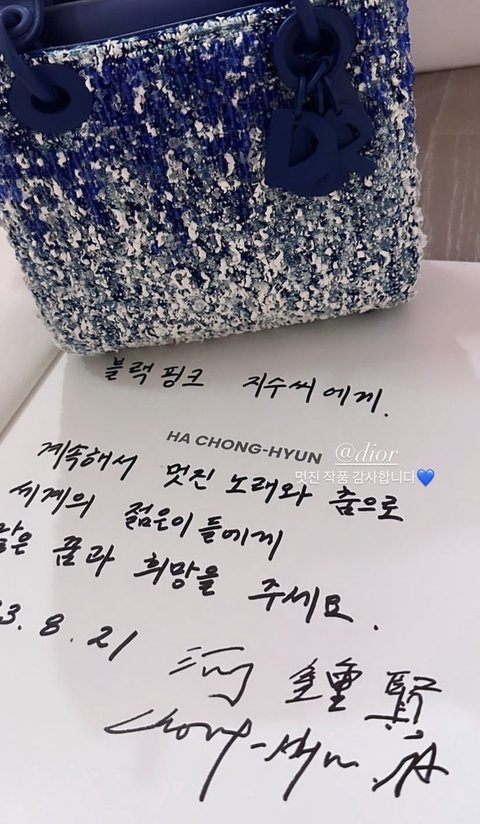 블랙핑크 지수씨에게.
HA CHONG-HYUN @dior
멋진 작품 감사합니다💙
계속해서 멋진 노래와 춤으로
세계의 젊은이들에게
꿈과 희망을 주세요.
3. 8. 21
河 鍾 賢
Chong-Hyun, HA